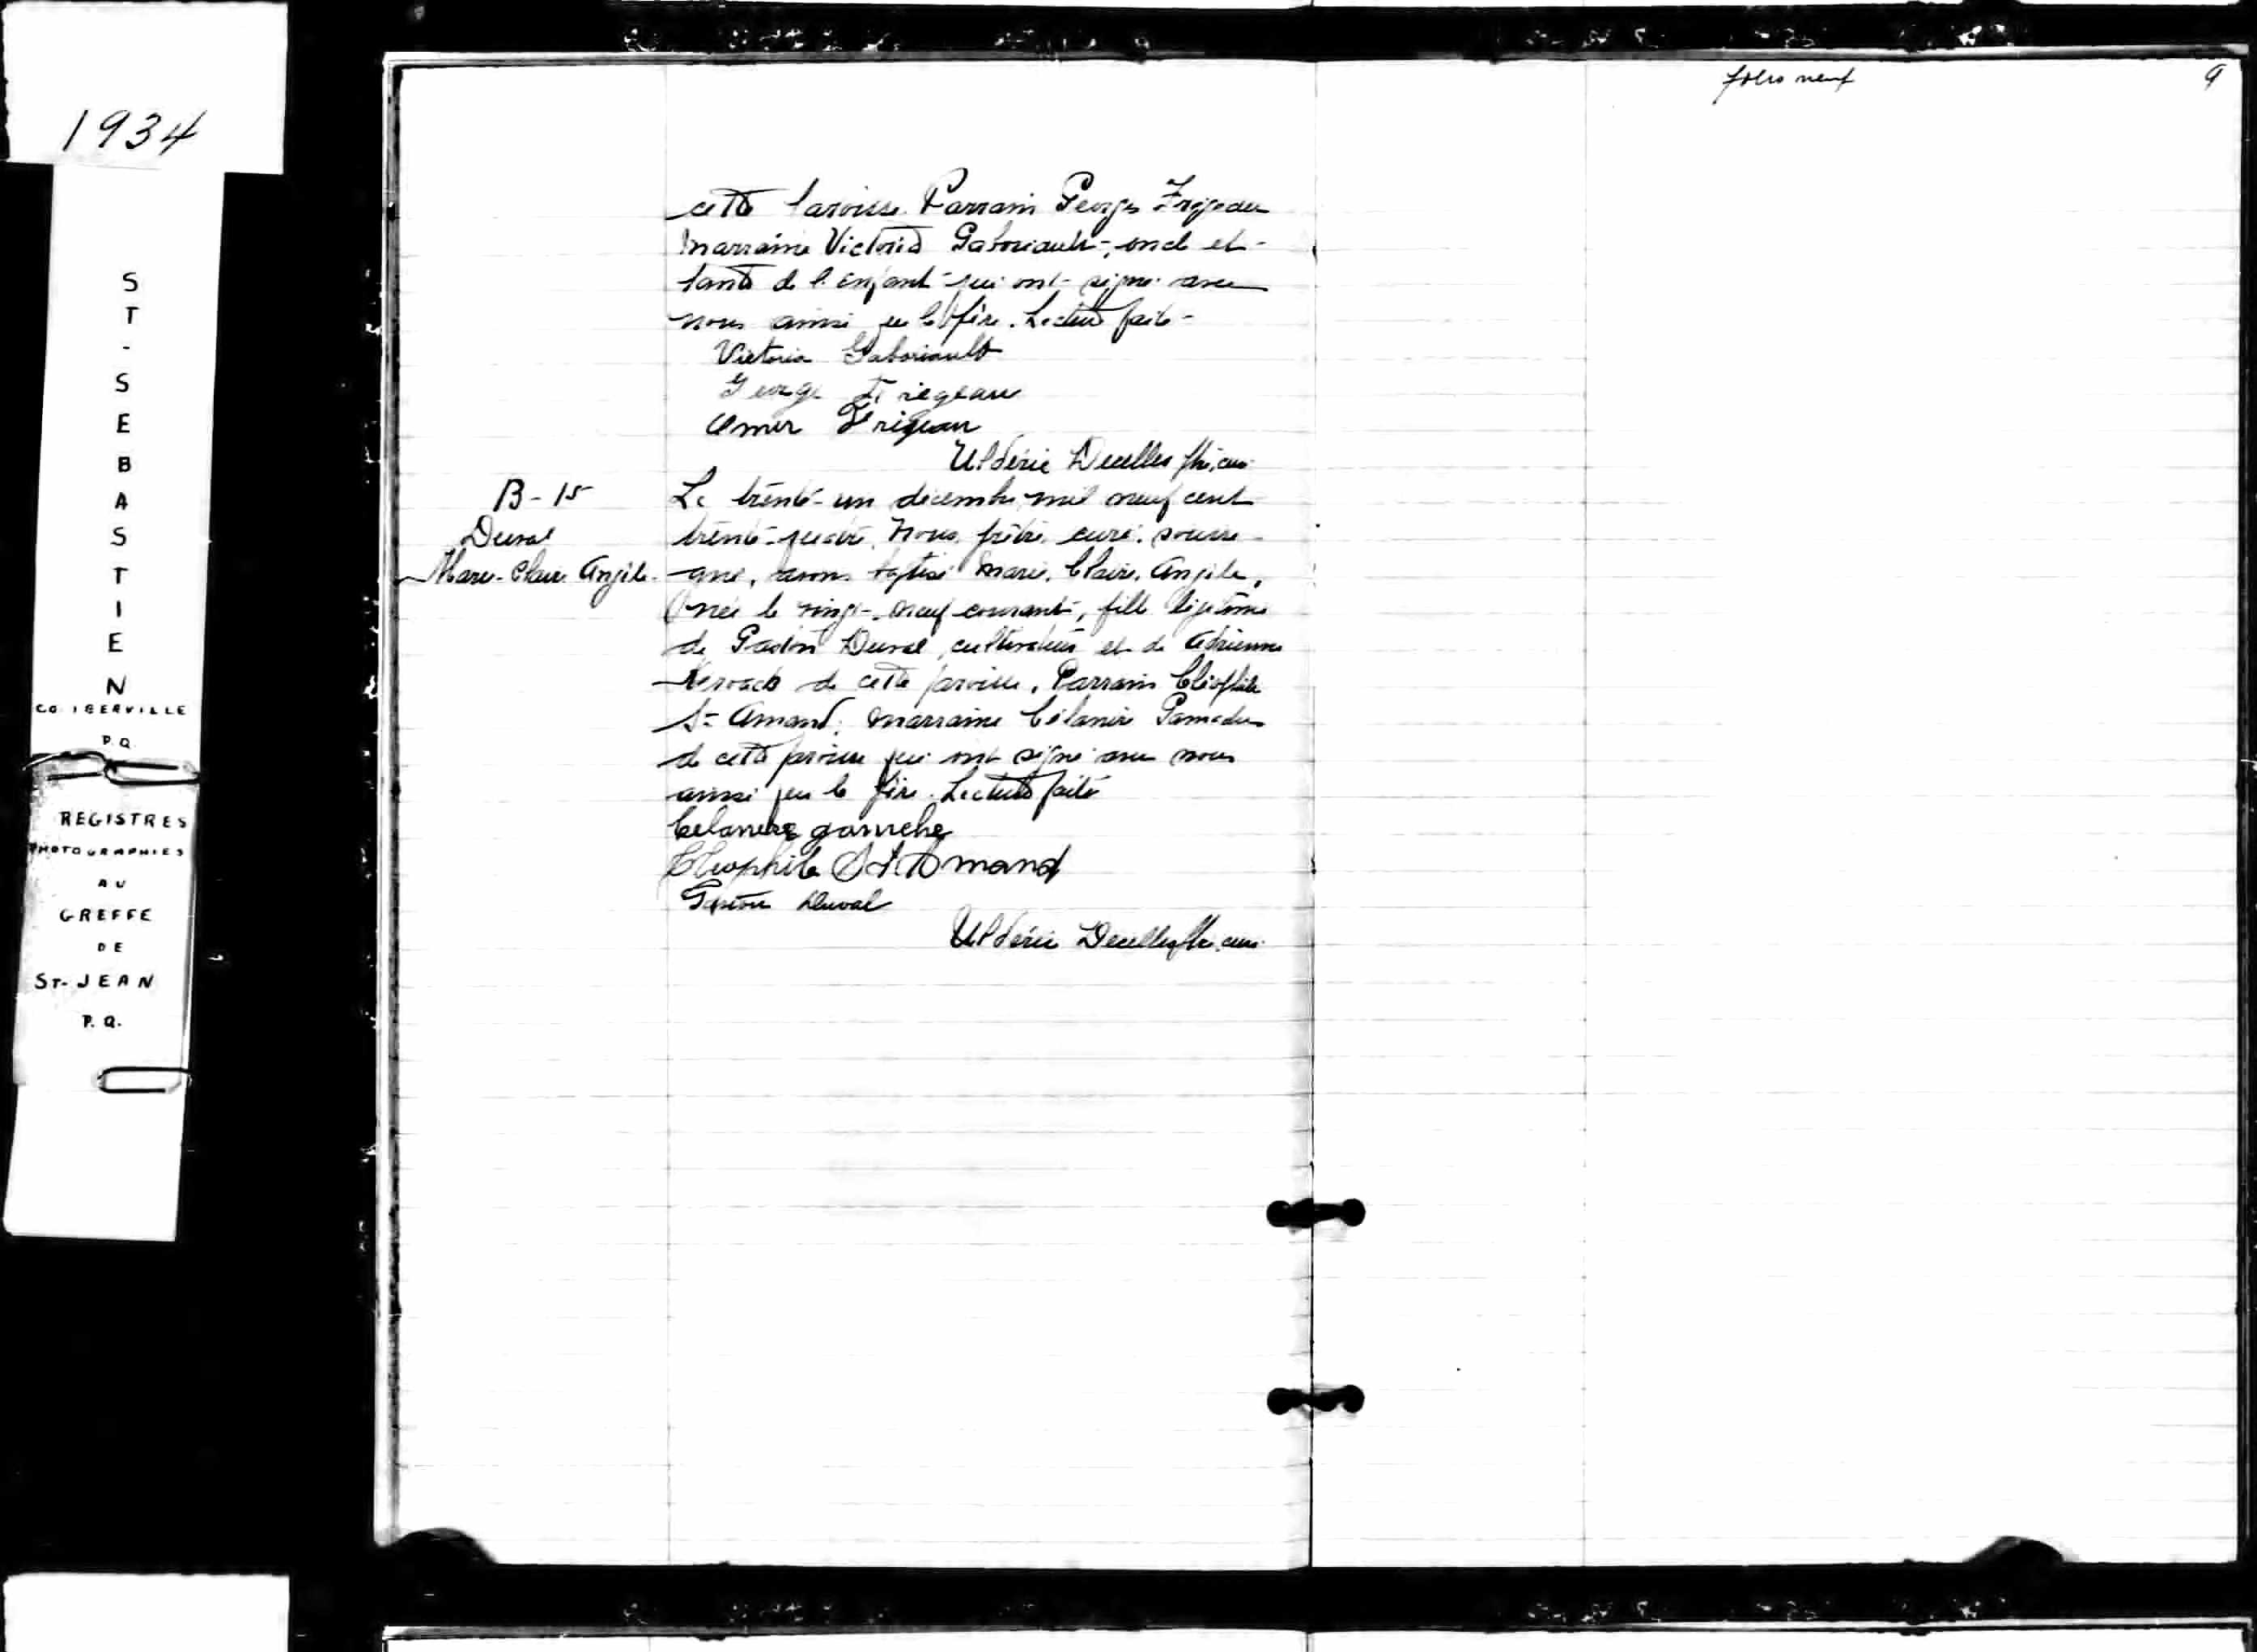 1934
ST-SEBASTIEN
CO. IBERVILLE
P.Q.
REGISTRES
PHOTOGRAPHIES
AU
GREFFE
DE
ST-JEAN
P.Q.
cette paroisse. Parrain Georges Frégeau
marraine Victoria Gaboriault, oncle et
tante de l'enfant qui ont signé avec
nous ainsi que le père. Lecture faite
Victoria Gaboriault
George Fregeau
Omer Frégeau
Uldéric Decelles ptre, curé
B-15
Duval
Marie-Claire Angèle
Le trente-un décembre mil neuf cent
trente-quatre, nous, prêtre, curé, soussi-
gné, avons baptisé Marie, Claire, Angèle,
née le vingt-neuf courant, fille légitime
de Gaston Duval, cultivateur et de Adrienne
de cette paroisse. Parrain Cléophile
St-Amand, marraine Célanire Gamache
de cette paroisse qui ont signé avec nous
ainsi que le père. Lecture faite
Celanire gamache
Cleophile St Amand
Gaston Duval
Uldéric Decelles ptre, curé
folio neuf
9